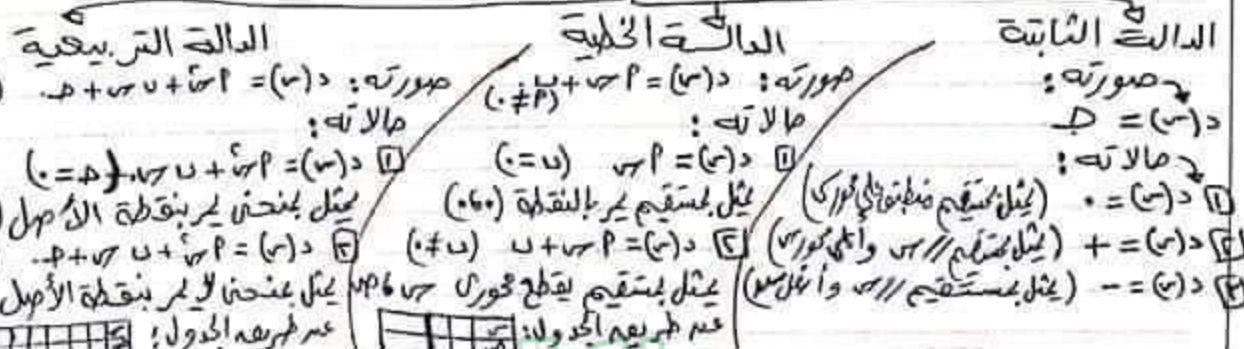 الدالة الثابتة
صورته:
د(س) = جـ
حالاته:
١ د(س) = ٠ (يمثل بمستقيم منطبق على محور س)
٢ د(س) = + (يمثل بمستقيم // س وأعلى محور س)
٣ د(س) = - (يمثل بمستقيم // س وأسفل س)
الدالة الخطية
صورته: د(س) = م س + ب
(م ≠ ٠)
حالاته:
١ د(س) = م س (ب = ٠)
يمثل بمستقيم يمر بالنقطة (٠،٠)
٢ د(س) = م س + ب (ب ≠ ٠)
يمثل بمستقيم يقطع محوري س، ص
عن طريق الجدول:
الدالة التربيعية
صورته: د(س) = م س² + ب س + جـ
حالاته:
١ د(س) = م س² + ب س (جـ = ٠)
يمثل بمنحنى يمر بنقطة الأصل
٢ د(س) = م س² + ب س + جـ
يمثل بمنحنى لا يمر بنقطة الأصل
عن طريق الجدول: